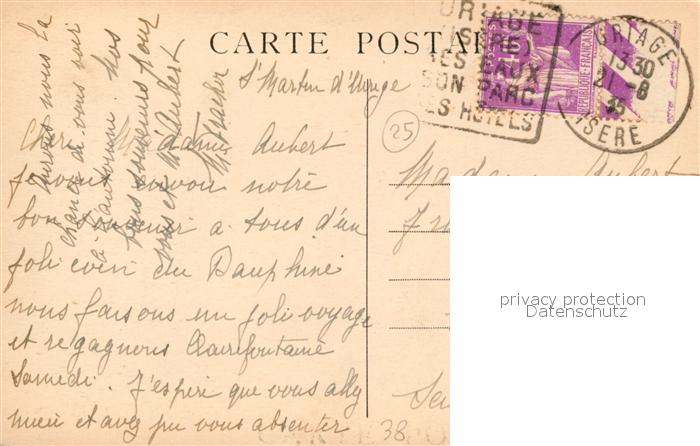 CARTE POSTALE
URIAGE
(ISERE)
SES EAUX
SON PARC
SES HOTELS
REPUBLIQUE FRANÇAISE
URIAGE
13 30
21 -8
35
ISERE
St Martin d'Uriage
25
Chère Madame Aubert
Je vous envoie notre
bon souvenir à tous d'un
joli coin du Dauphiné
nous faisons un joli voyage
et regagnons Clairefontaine
Samedi. J'espère que vous allez
mieux et avez pu vous absenter
aurons nous la
chance de vous voir
à l'automne. Nos
bons souvenirs pour
vous et M. Aubert
Madame Aubert
privacy protection
Datenschutz
38